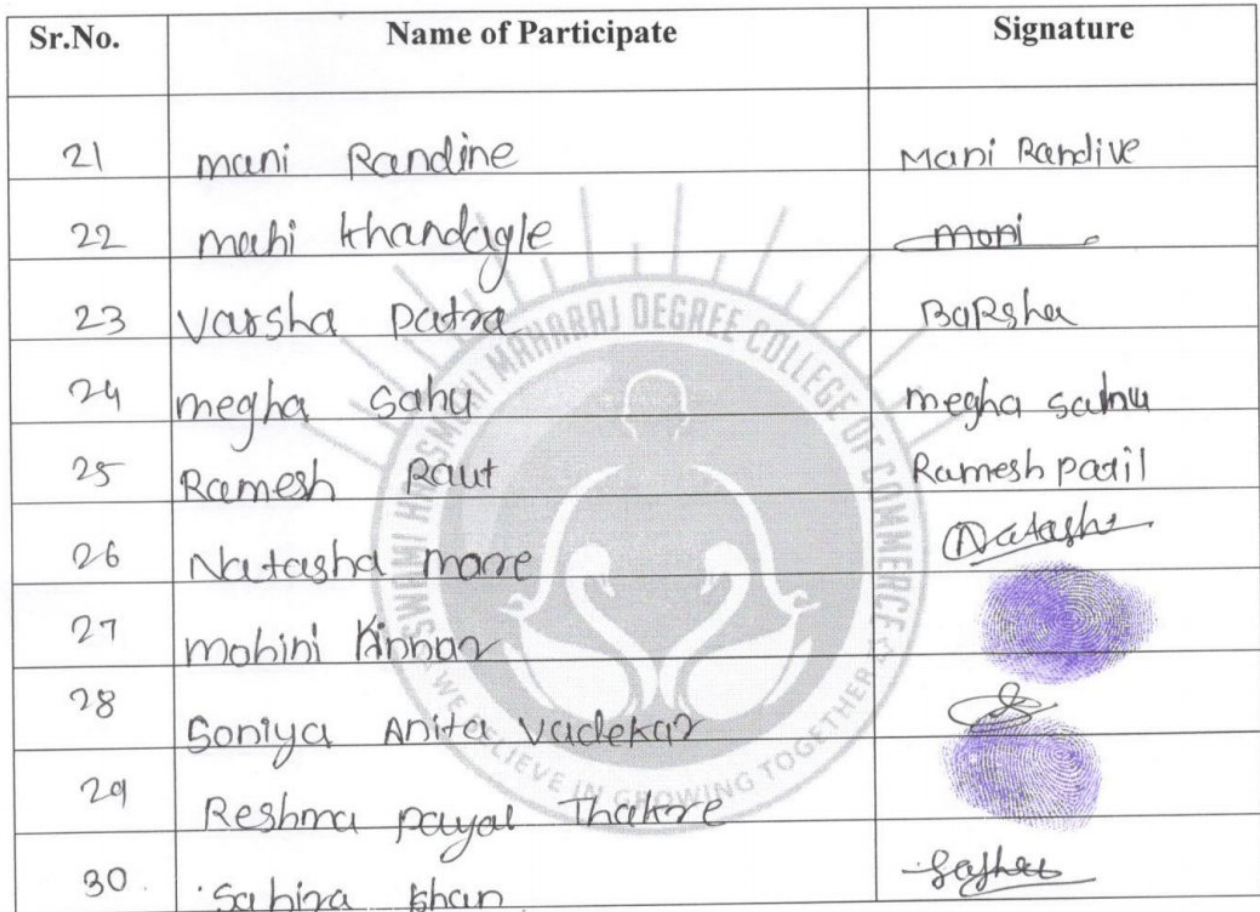 Sr.No. Name of Participate Signature
21 mani Randine Mani Randive
22 mahi khandagle mani
23 Varsha patra BaRsha
24 megha sahu megha sahu
25 Ramesh Raut Ramesh patil
26 Natasha more Natasha
27 mohini Kinnar
28 Soniya Anita Vadekar
29 Reshma payal Thakre
30 Sahira khan
SWAMI HANSMUNI MAHARAJ DEGREE COLLEGE OF COMMERCE
WE BELIEVE IN GROWING TOGETHER